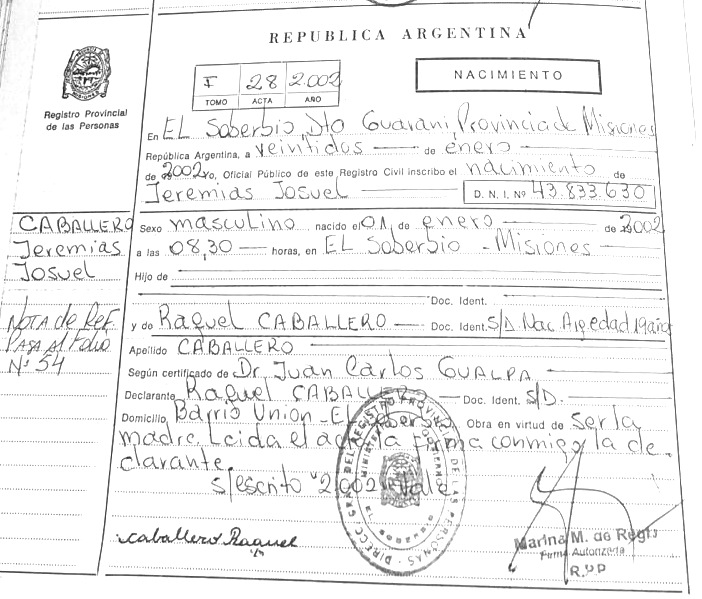 REPUBLICA ARGENTINA
I 28 2.002
TOMO ACTA AÑO
NACIMIENTO
Registro Provincial
de las Personas
En EL Soberbio, Dto Guaraní, Provincia de Misiones
República Argentina, a veintidos de enero
de 2002 yo, Oficial Público de este Registro Civil inscribo el nacimiento de
Jeremias Josuel D. N. I. Nº 43.833.630
CABALLERO
Jeremias
Josuel
NOTA de Ref.
PASA AL Folio
Nº 54
Sexo masculino nacido el 01 de enero de 2002
a las 08,30 horas, en EL Soberbio - Misiones
Hijo de
Doc. Ident.
y de Raquel CABALLERO Doc. Ident. S/D. Nac. Arg. edad 19 años
Apellido CABALLERO
Según certificado de Dr. Juan Carlos GUALPA
Declarante Raquel CABALLERO Doc. Ident. S/D.
Domicilio Barrio Union - EL Soberbio Obra en virtud de ser la
madre. Leida el acta la firma conmigo la de-
clarante.
s/escrito "2.002" Vale
Caballero Raquel
Marina M. de Regis
Firma Autorizada
R.P.P